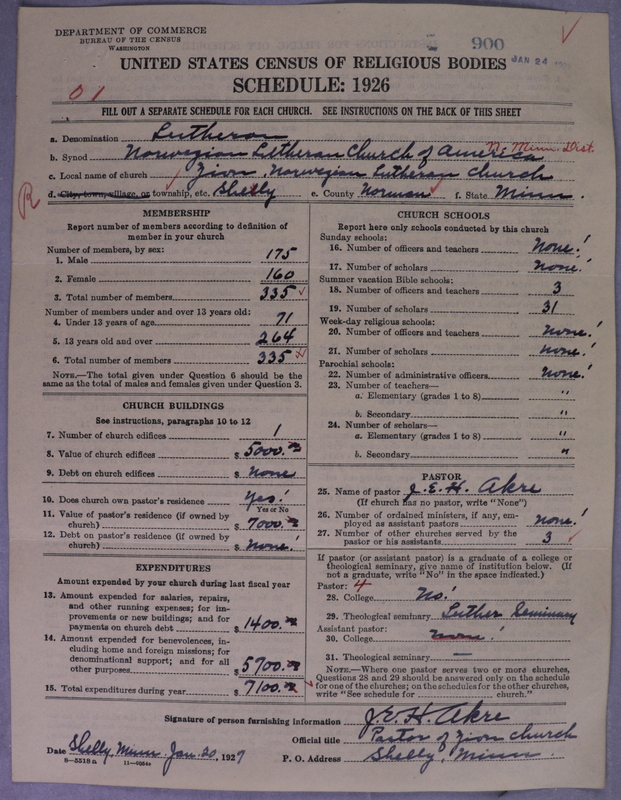 DEPARTMENT OF COMMERCE
BUREAU OF THE CENSUS
WASHINGTON
5 900 JAN 24
UNITED STATES CENSUS OF RELIGIOUS BODIES
SCHEDULE: 1926
01
FILL OUT A SEPARATE SCHEDULE FOR EACH CHURCH. SEE INSTRUCTIONS ON THE BACK OF THIS SHEET
a. Denomination Lutheran
b. Synod Norwegian Lutheran Church of America N. Minn. Dist.
c. Local name of church Zion Norwegian Lutheran Church
R d. City, town, village, or township, etc. Shelly e. County Norman f. State Minn.
MEMBERSHIP
Report number of members according to definition of member in your church
Number of members, by sex:
1. Male 175
2. Female 160
3. Total number of members 335
Number of members under and over 13 years old:
4. Under 13 years of age 71
5. 13 years old and over 264
6. Total number of members 335
NOTE.—The total given under Question 6 should be
same as the total of males and females given under Question 3.
CHURCH BUILDINGS
See instructions, paragraphs 10 to 12
7. Number of church edifices 1
8. Value of church edifices $ 5000.00
9. Debt on church edifices $ None
10. Does church own pastor's residence Yes!
Yes or No
11. Value of pastor's residence (if owned by
church) $ 7000.00
12. Debt on pastor's residence (if owned by
church) $ None!
EXPENDITURES
Amount expended by church during last fiscal year
13. Amount expended for salaries, repairs,
and other running expenses; for im-
provements or new buildings; and for
payments on church debt $ 1400.00
14. Amount expended for benevolences, in-
cluding home and foreign missions; for
denominational support; and for all
other purposes $ 5700.00
15. Total expenditures during year $ 7100.00
CHURCH SCHOOLS
Report here only schools conducted by this church
Sunday schools:
16. Number of officers and teachers None!
17. Number of scholars None!
Summer vacation Bible schools:
18. Number of officers and teachers 3
19. Number of scholars 31
Week-day religious schools:
20. Number of officers and teachers None!
21. Number of scholars None!
Parochial schools:
22. Number of administrative officers None!
23. Number of teachers—
a. Elementary (grades 1 to 8) "
b. Secondary "
24. Number of scholars—
a. Elementary (grades 1 to 8) "
b. Secondary "
PASTOR
25. Name of pastor J. E. H. Akre
(If church has no pastor, write "None")
26. Number of ordained ministers, if any, em-
ployed as assistant pastors None!
27. Number of other churches served by the
pastor or his assistants 3
If pastor (or assistant pastor) is a graduate of a college or
theological seminary, give name of institution below. (If
not a graduate, write "No" in the space indicated.)
Pastor: 4
28. College No!
29. Theological seminary Luther Seminary
Assistant pastor:
30. College None!
31. Theological seminary —
NOTE.—Where one pastor serves two or more churches,
Questions 28 and 29 should be answered only on the schedule
for one of the churches; on the schedules for the other churches,
write "See schedule for church."
Signature of person furnishing information J. E. H. Akre
Official title Pastor of Zion Church
Date Shelly, Minn. Jan. 20, 1927 P. O. Address Shelly, Minn.
8—5318a 11—9054a